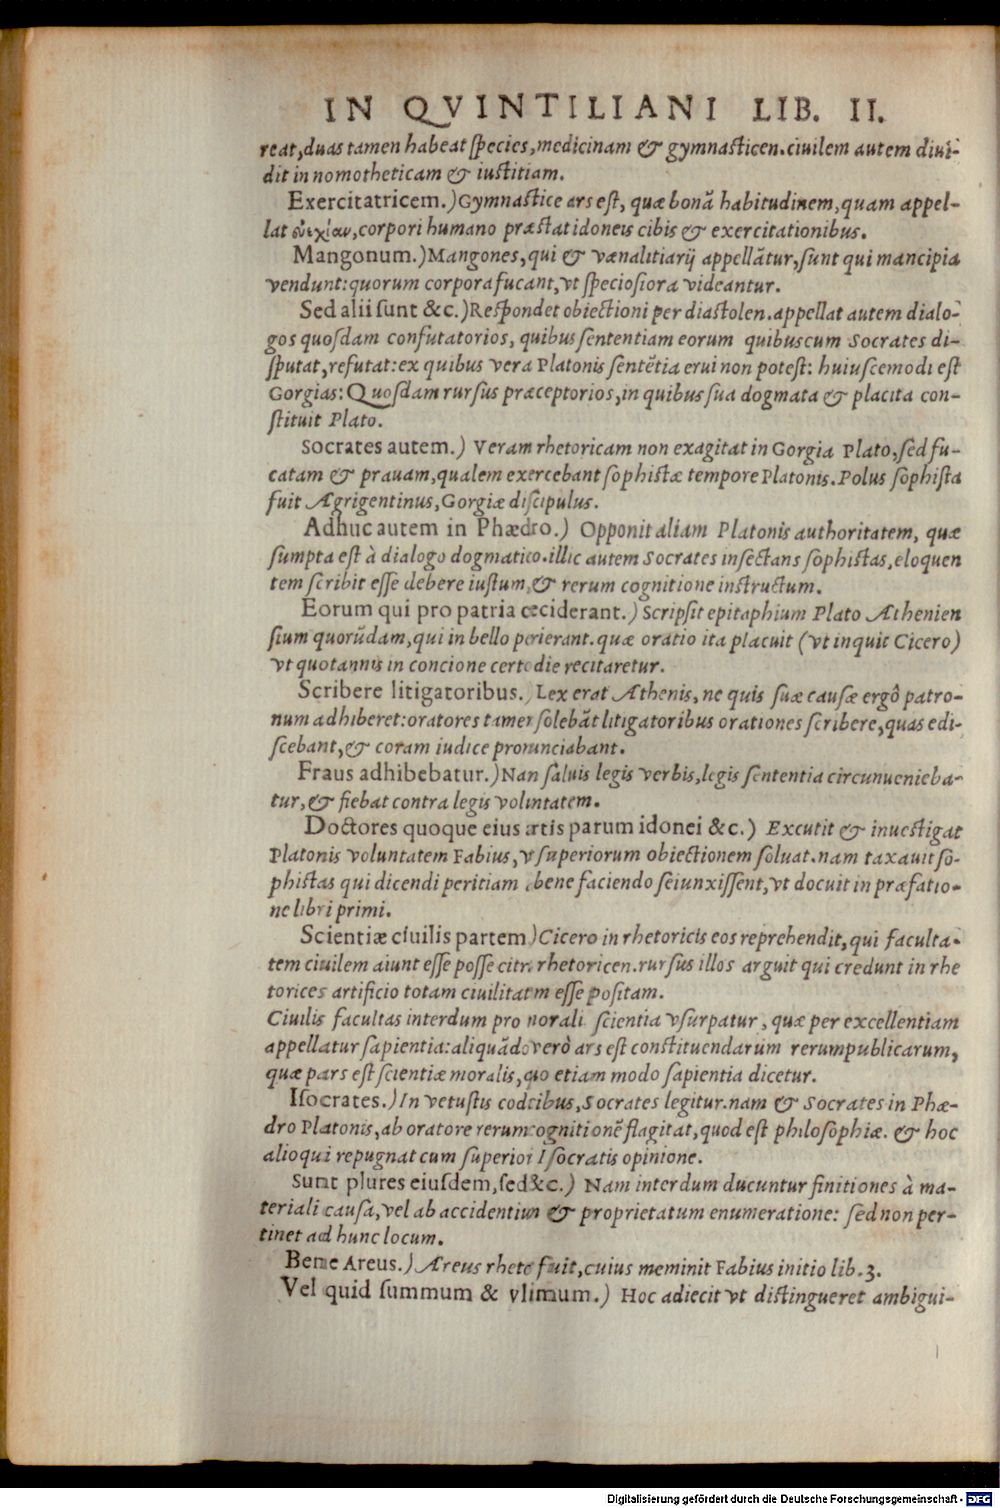 IN QVINTILIANI LIB. II.
reat, duas tamen habeat species, medicinam & gymnasticen. ciuilem autem diui-
dit in nomotheticam & iustitiam.
Exercitatricem.) Gymnastice ars est, quæ bonā habitudinem, quam appel-
lat εὐεξίαν, corpori humano præstat idoneis cibis & exercitationibus.
Mangonum.) Mangones, qui & vænalitiarij appellātur, sunt qui mancipia
vendunt: quorum corpora fucant, vt speciosiora videantur.
Sed alii sunt &c.) Respondet obiectioni per diastolen. appellat autem dialo-
gos quosdam confutatorios, quibus sententiam eorum quibuscum Socrates di-
sputat, refutat: ex quibus vera Platonis sentētia erui non potest: huiuscemodi est
Gorgias: Quosdam rursus præceptorios, in quibus sua dogmata & placita con-
stituit Plato.
Socrates autem.) Veram rhetoricam non exagitat in Gorgia Plato, sed fu-
catam & prauam, qualem exercebant sophistæ tempore Platonis. Polus sophista
fuit Agrigentinus, Gorgiæ discipulus.
Adhuc autem in Phædro.) Opponit aliam Platonis authoritatem, quæ
sumpta est à dialogo dogmatico. illic autem Socrates insectans sophistas, eloquen
tem scribit esse debere iustum, & rerum cognitione instructum.
Eorum qui pro patria ceciderant.) Scripsit epitaphium Plato Athenien
sium quorūdam, qui in bello perierant. quæ oratio ita placuit (vt inquit Cicero)
vt quotannis in concione certo die recitaretur.
Scribere litigatoribus.) Lex erat Athenis, ne quis suæ causæ ergô patro-
num adhiberet: oratores tamen solebāt litigatoribus orationes scribere, quas edi-
scebant, & coram iudice pronunciabant.
Fraus adhibebatur.) Nan saluis legis verbis, legis sententia circunuenieba-
tur, & fiebat contra legis voluntatem.
Doctores quoque eius artis parum idonei &c.) Excutit & inuestigat
Platonis voluntatem Fabius, vt superiorum obiectionem soluat. nam taxauit so-
phistas qui dicendi peritiam à bene faciendo seiunxissent, vt docuit in præfatio-
ne libri primi.
Scientiæ ciuilis partem) Cicero in rhetoricis eos reprehendit, qui faculta-
tem ciuilem aiunt esse posse citra rhetoricen. rursus illos arguit qui credunt in rhe
torices artificio totam ciuilitatem esse positam.
Ciuilis facultas interdum pro morali scientia vsurpatur, quæ per excellentiam
appellatur sapientia: aliquādo verò ars est constituendarum rerumpublicarum,
quæ pars est scientiæ moralis, quo etiam modo sapientia dicetur.
Isocrates.) In vetustis codicibus, Socrates legitur. nam & Socrates in Phæ-
dro Platonis, ab oratore rerum cognitionē flagitat, quod est philosophiæ. & hoc
alioqui repugnat cum superiori Isocratis opinione.
Sunt plures eiusdem, sed &c.) Nam interdum ducuntur finitiones à ma-
teriali causa, vel ab accidentium & proprietatum enumeratione: sed non per-
tinet ad hunc locum.
Bene Areus.) Areus rhetor fuit, cuius meminit Fabius initio lib. 3.
Vel quid summum & vltimum.) Hoc adiecit vt distingueret ambigui-
Digitalisierung gefördert durch die Deutsche Forschungsgemeinschaft - DFG